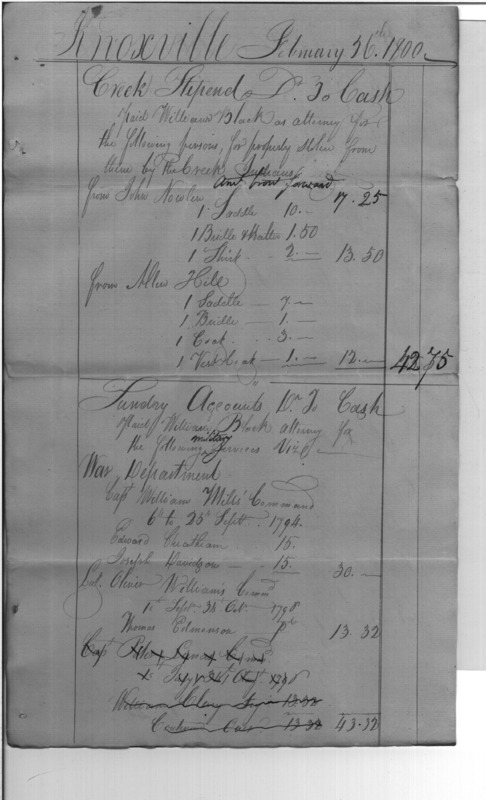 Knoxville February 26th. 1800
Creek Stipend Dr. To Cash
Paid William Black as attorney for
the following persons, for property stolen from
them by the Creek Indians
Amt brot forward 17.25
from John Nowlen
1 Saddle 10.—
1 Bridle & Halter 1.50
1 Shirt 2.— 13.50
from Allen Hill
1 Saddle — 7 —
1 Bridle — 1.—
1 Coat 3.—
1 Coat — 1.— 12.— 42.75
Sundry Accounts Dr. To Cash
Paid William Black attorney for
the following military services Viz.
War Department
Capt William Mills' Command
6th to 25th Septr. 1794.
Edward Cheatham 15.
Joseph Davidson — 15. 30.—
Col. Oliver Williams Comd
1st Sept. 31t Oct.
Thomas Edmonson 13.32
Capt
William Clay 13.32
13.32 43.32